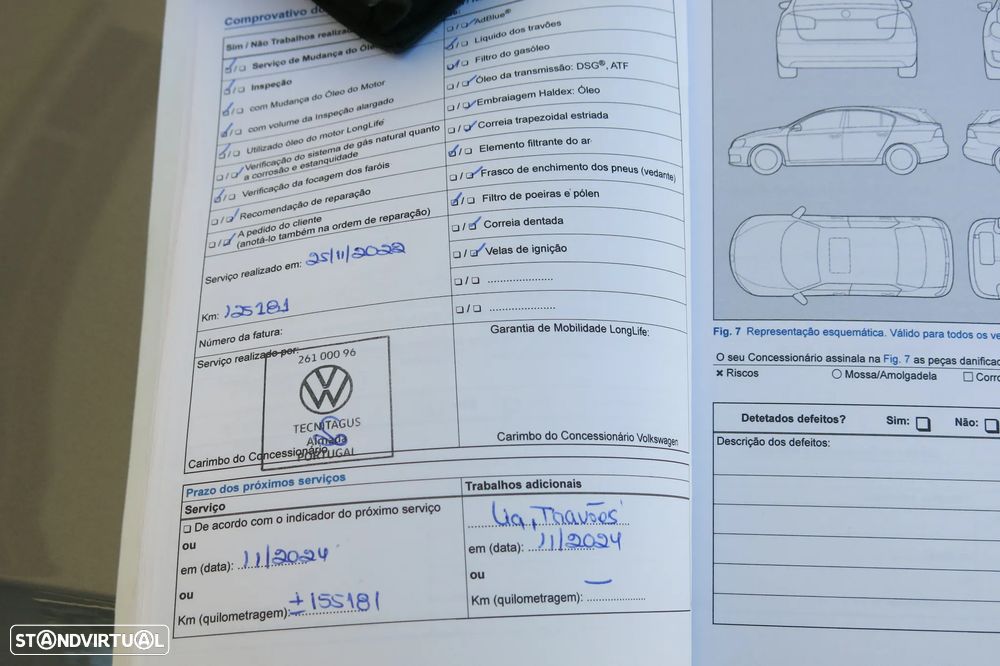 Comprovativo
Sim / Não Trabalhos
Serviço de Mudança do
Inspeção
com Mudança do Óleo do Motor
com volume da Inspeção alargado
Utilizado óleo do motor LongLife
Verificação do sistema de gás natural quanto
a corrosão e estanquidade
Verificação da focagem dos faróis
Recomendação de reparação
A pedido do cliente
(anotá-lo também na ordem de reparação)
Serviço realizado em: 25/11/2022
Km: 125181
Número da fatura:
Serviço realizado por:
261 000 96
TECNITAGUS
Almada
PORTUGAL
Carimbo do Concessionário
AdBlue®
Líquido dos travões
Filtro do gasóleo
Óleo da transmissão: DSG®, ATF
Embraiagem Haldex: Óleo
Correia trapezoidal estriada
Elemento filtrante do ar
Frasco de enchimento dos pneus (vedante)
Filtro de poeiras e pólen
Correia dentada
Velas de ignição
Garantia de Mobilidade LongLife:
Carimbo do Concessionário Volkswagen
Prazo dos próximos serviços
Serviço
De acordo com o indicador do próximo serviço
ou
em (data): 11/2024
ou
Km (quilometragem): ±155181
Trabalhos adicionais
Liq, Travões
em (data): 11/2024
ou
Km (quilometragem):
Fig. 7 Representação esquemática. Válido para todos os
O seu Concessionário assinala na Fig. 7 as peças
Riscos
Mossa/Amolgadela
Detetados defeitos? Sim: Não:
Descrição dos defeitos:
STANDVIRTUAL